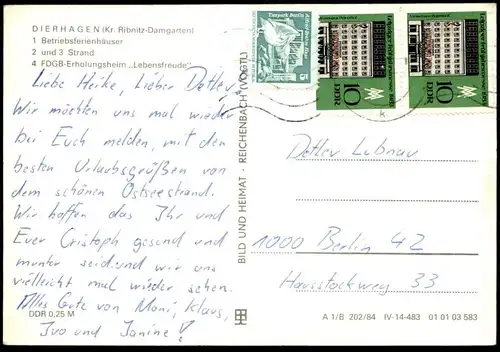 DIERHAGEN (Kr. Ribnitz-Damgarten)
1 Betriebsferienhäuser
2 und 3 Strand
4 FDGB-Erholungsheim „Lebensfreude"
Liebe Heike, Lieber Detlev
Wir möchten uns mal wieder
bei Euch melden, mit den
besten Urlaubsgrüßen von
dem schönen Ostseestrand.
Wir hoffen das Ihr und
Euer Cristoph gesund und
munter seid. und wir uns
vielleicht mal wieder sehen.
Alles Gute von Moni, Klaus,
Ivo und Janine!
DDR 0,25 M
BILD UND HEIMAT · REICHENBACH (VOGTL)
Tierpark Berlin
DDR
10
DDR
10
Detlev Lubnau
1000 Berlin 42
Hausstockweg 33
A 1/B 202/84 IV-14-483 01 01 03 583